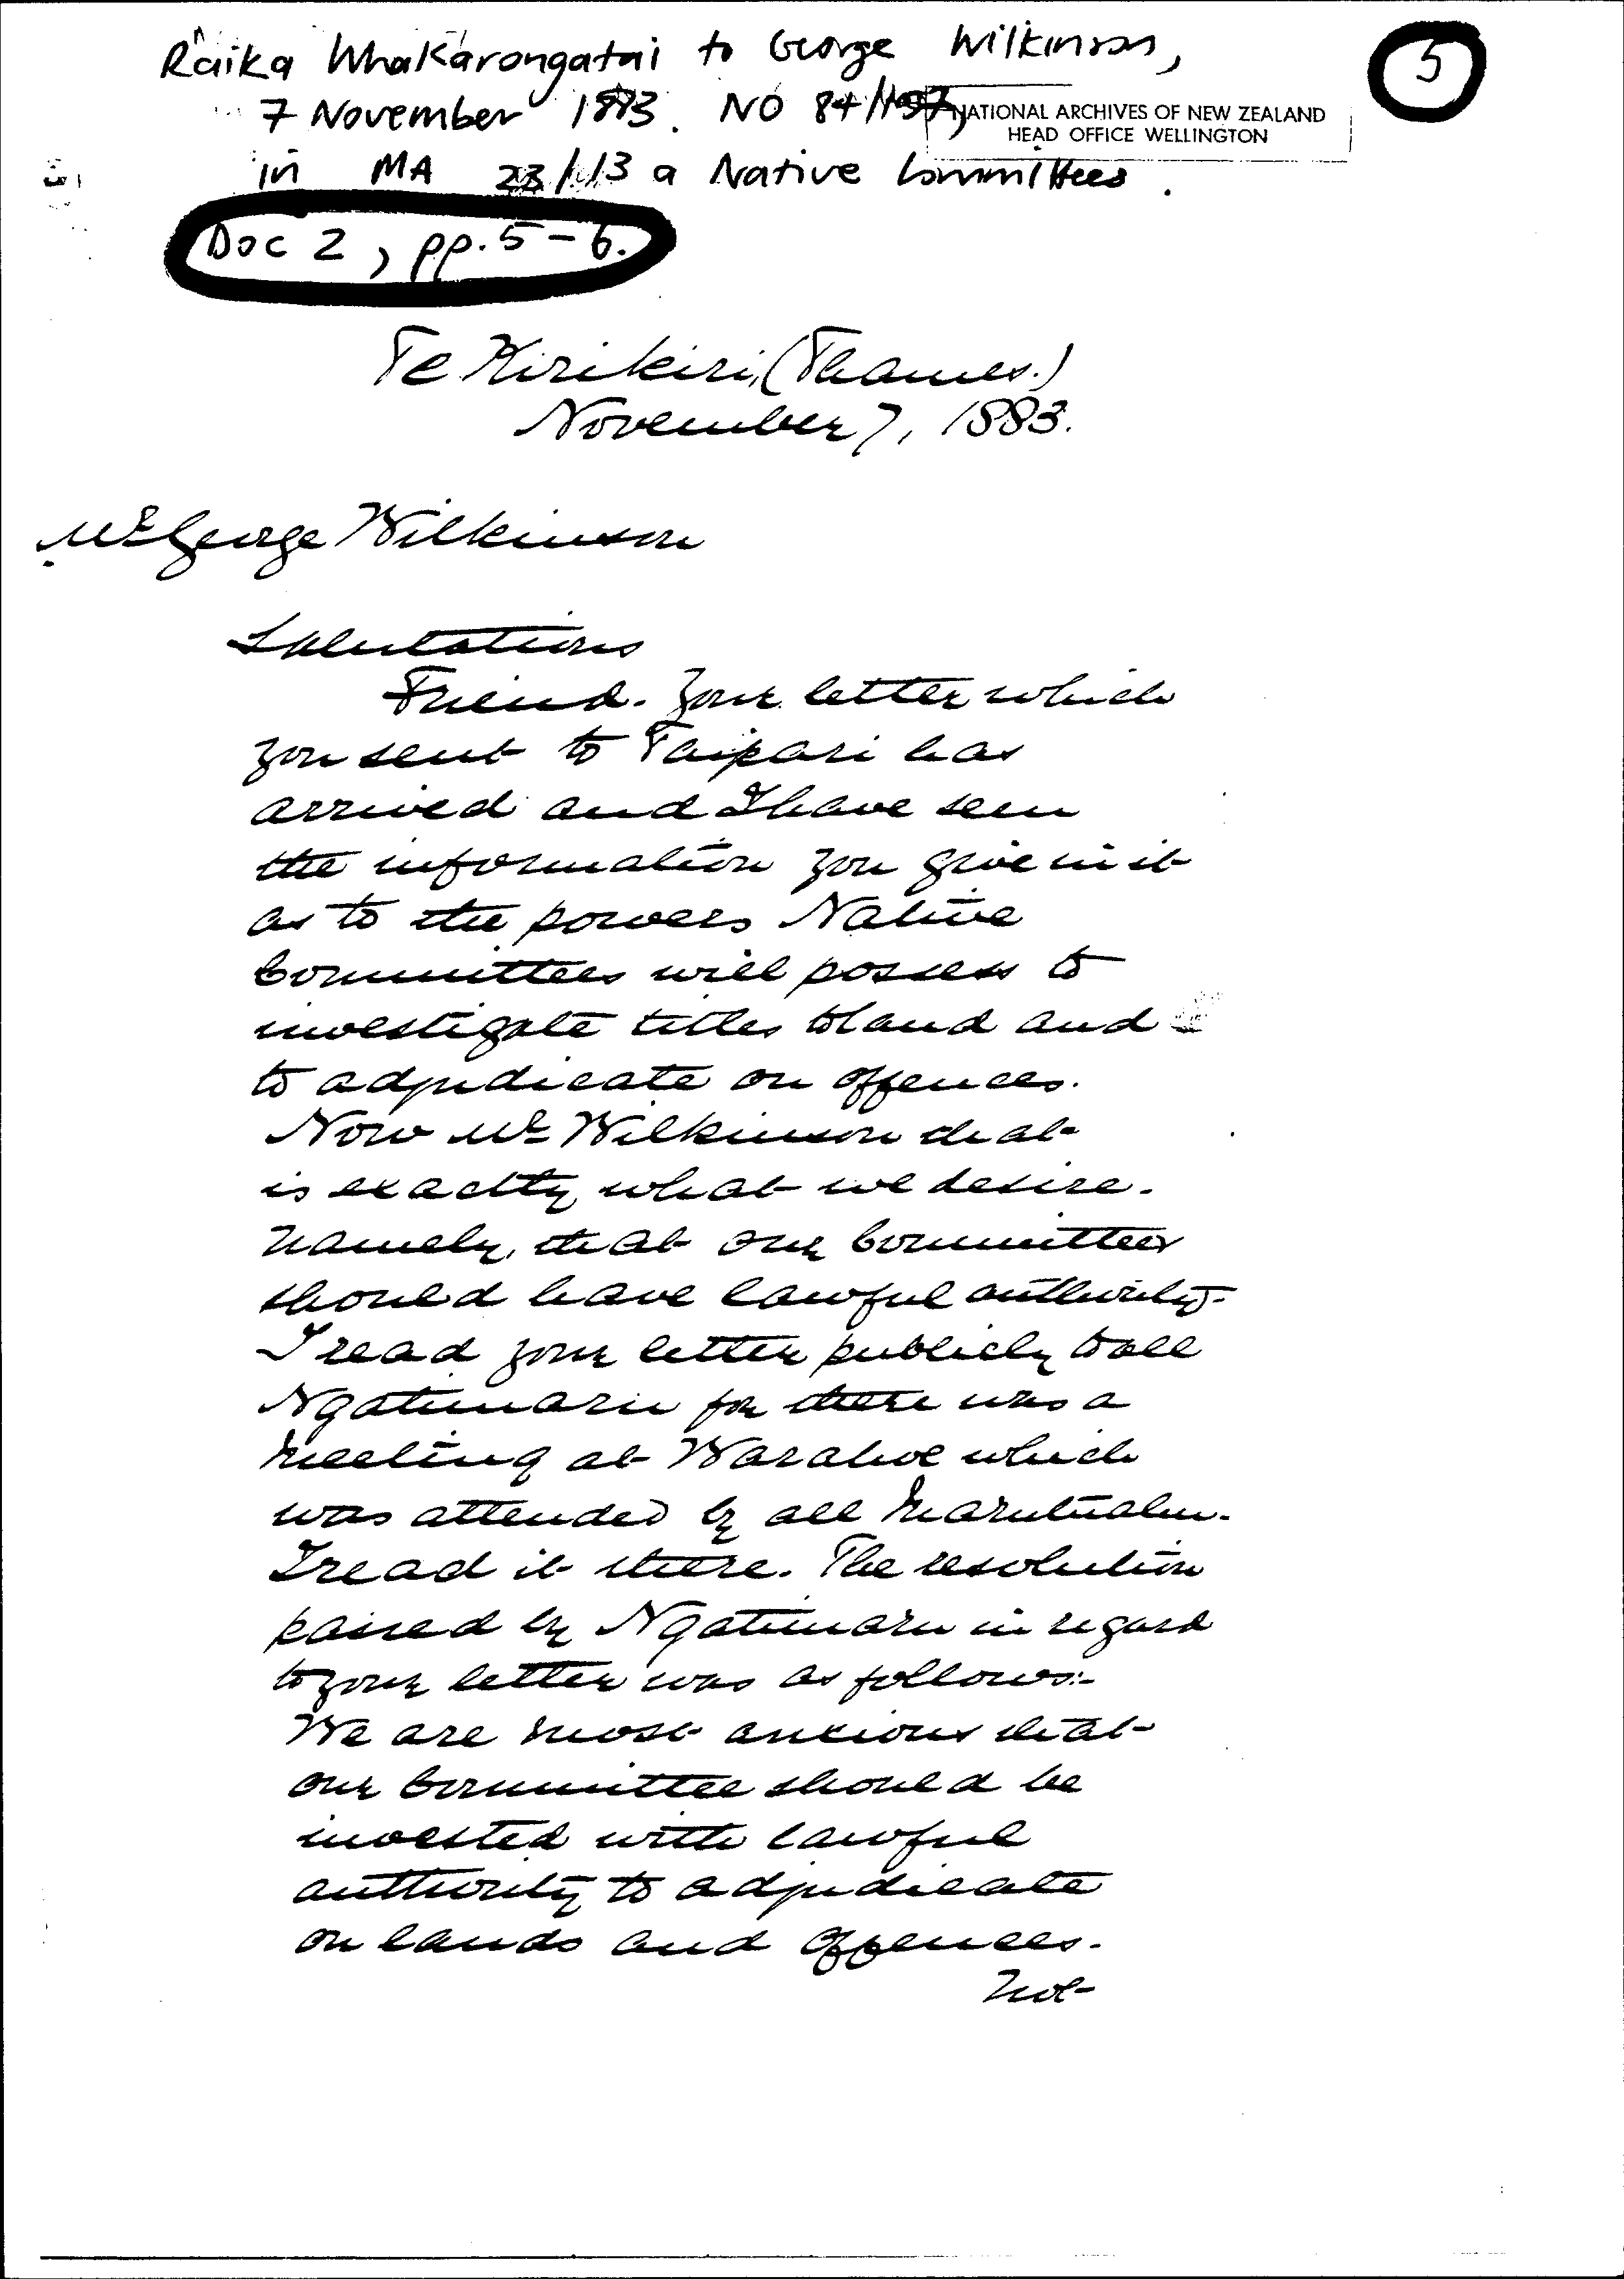 Raika Whakarongatai to George Wilkinson,
5
7 November 1883. NO 84/
NATIONAL ARCHIVES OF NEW ZEALAND
HEAD OFFICE WELLINGTON
in MA 23/13 a Native Committees.
Doc 2, pp. 5-6.
Te Kirikiri, (Thames.)
November 7, 1883.
Mr George Wilkinson
Salutations
Friend. Your letter which
you sent to Taipari has
arrived and I have seen
the information you give in it
as to the powers Native
Committees will possess to
investigate titles to land and
to adjudicate on offences.
Now Mr Wilkinson that
is exactly what we desire.
Namely, that our Committees
should have lawful authority.
I read your letter publicly to all
Ngatimaru for there was a
meeting at Warahoe which
was attended by all Marutuahu.
I read it there. The resolution
passed by Ngatimaru in regard
to your letter was as follows:-
We are most anxious that
our Committee should be
invested with lawful
authority to adjudicate
on lands and offences.
Not